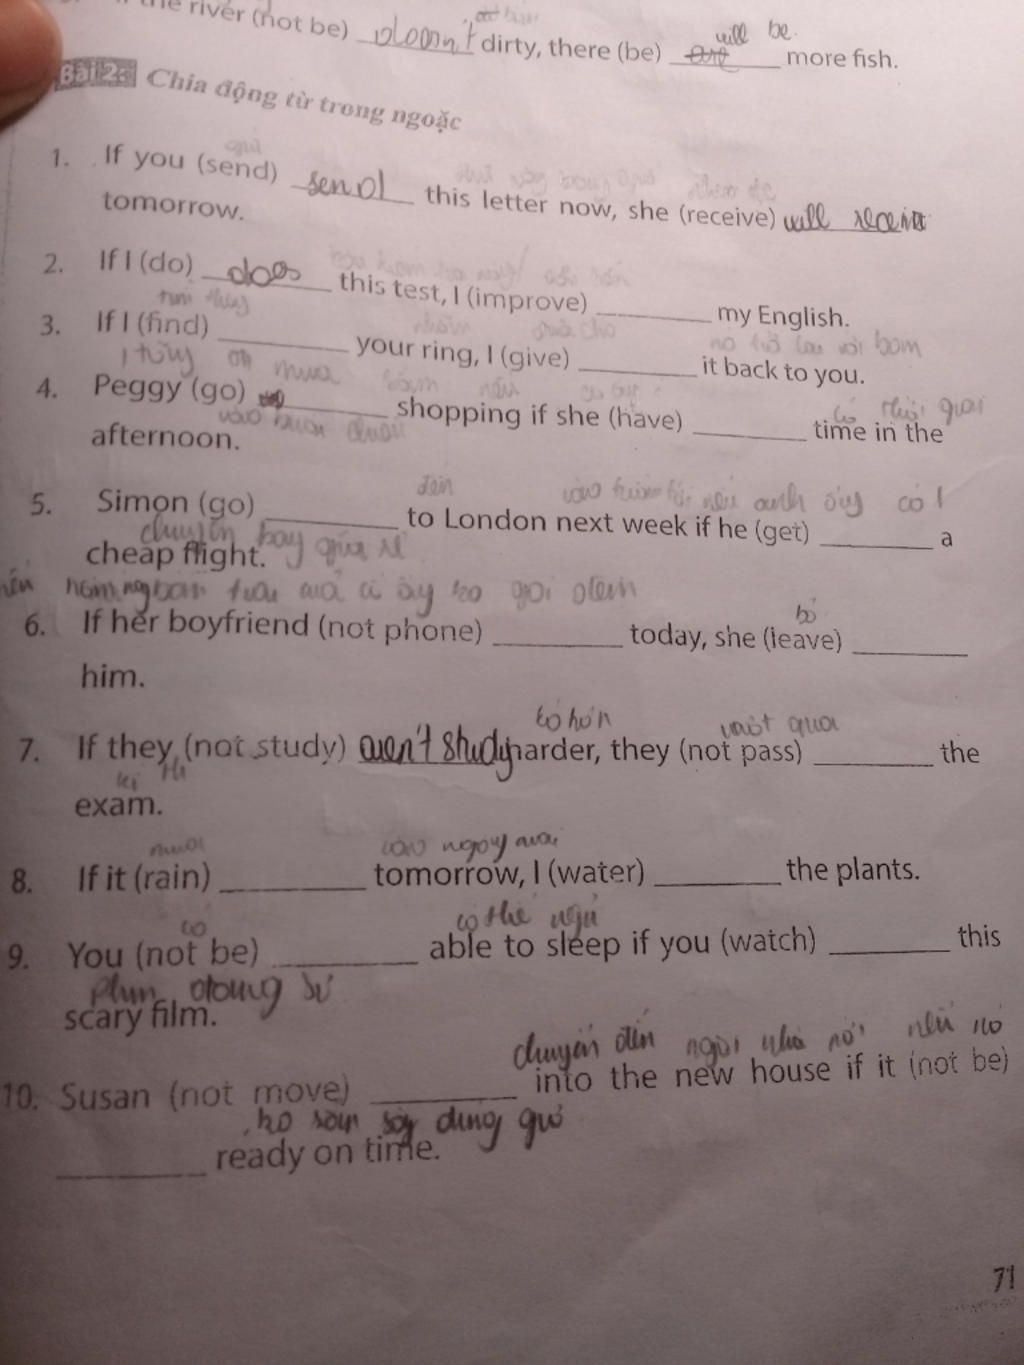 the river (not be) doesn't dirty, there (be) are will be more fish.
Bài 2: Chia động từ trong ngoặc
gửi
1. If you (send) send this letter now, she (receive) will receive
tomorrow.
2. If I (do) does this test, I (improve) ______ my English.
tìm thấy
3. If I (find) ______ your ring, I (give) ______ it back to you.
4. Peggy (go) ______ shopping if she (have) ______ time in the
afternoon.
đến
5. Simon (go) ______ to London next week if he (get) ______ a
chuyến bay giá rẻ
cheap flight.
bỏ
6. If her boyfriend (not phone) ______ today, she (leave) ______
him.
vượt qua
7. If they (not study) aren't study harder, they (not pass) ______ the
kì thi
exam.
vào ngày mai
8. If it (rain) ______ tomorrow, I (water) ______ the plants.
có thể ngủ
9. You (not be) ______ able to sleep if you (watch) ______ this
scary film.
chuyển đến ngôi nhà mới nếu nó
10. Susan (not move) ______ into the new house if it (not be)
______ ready on time.
71